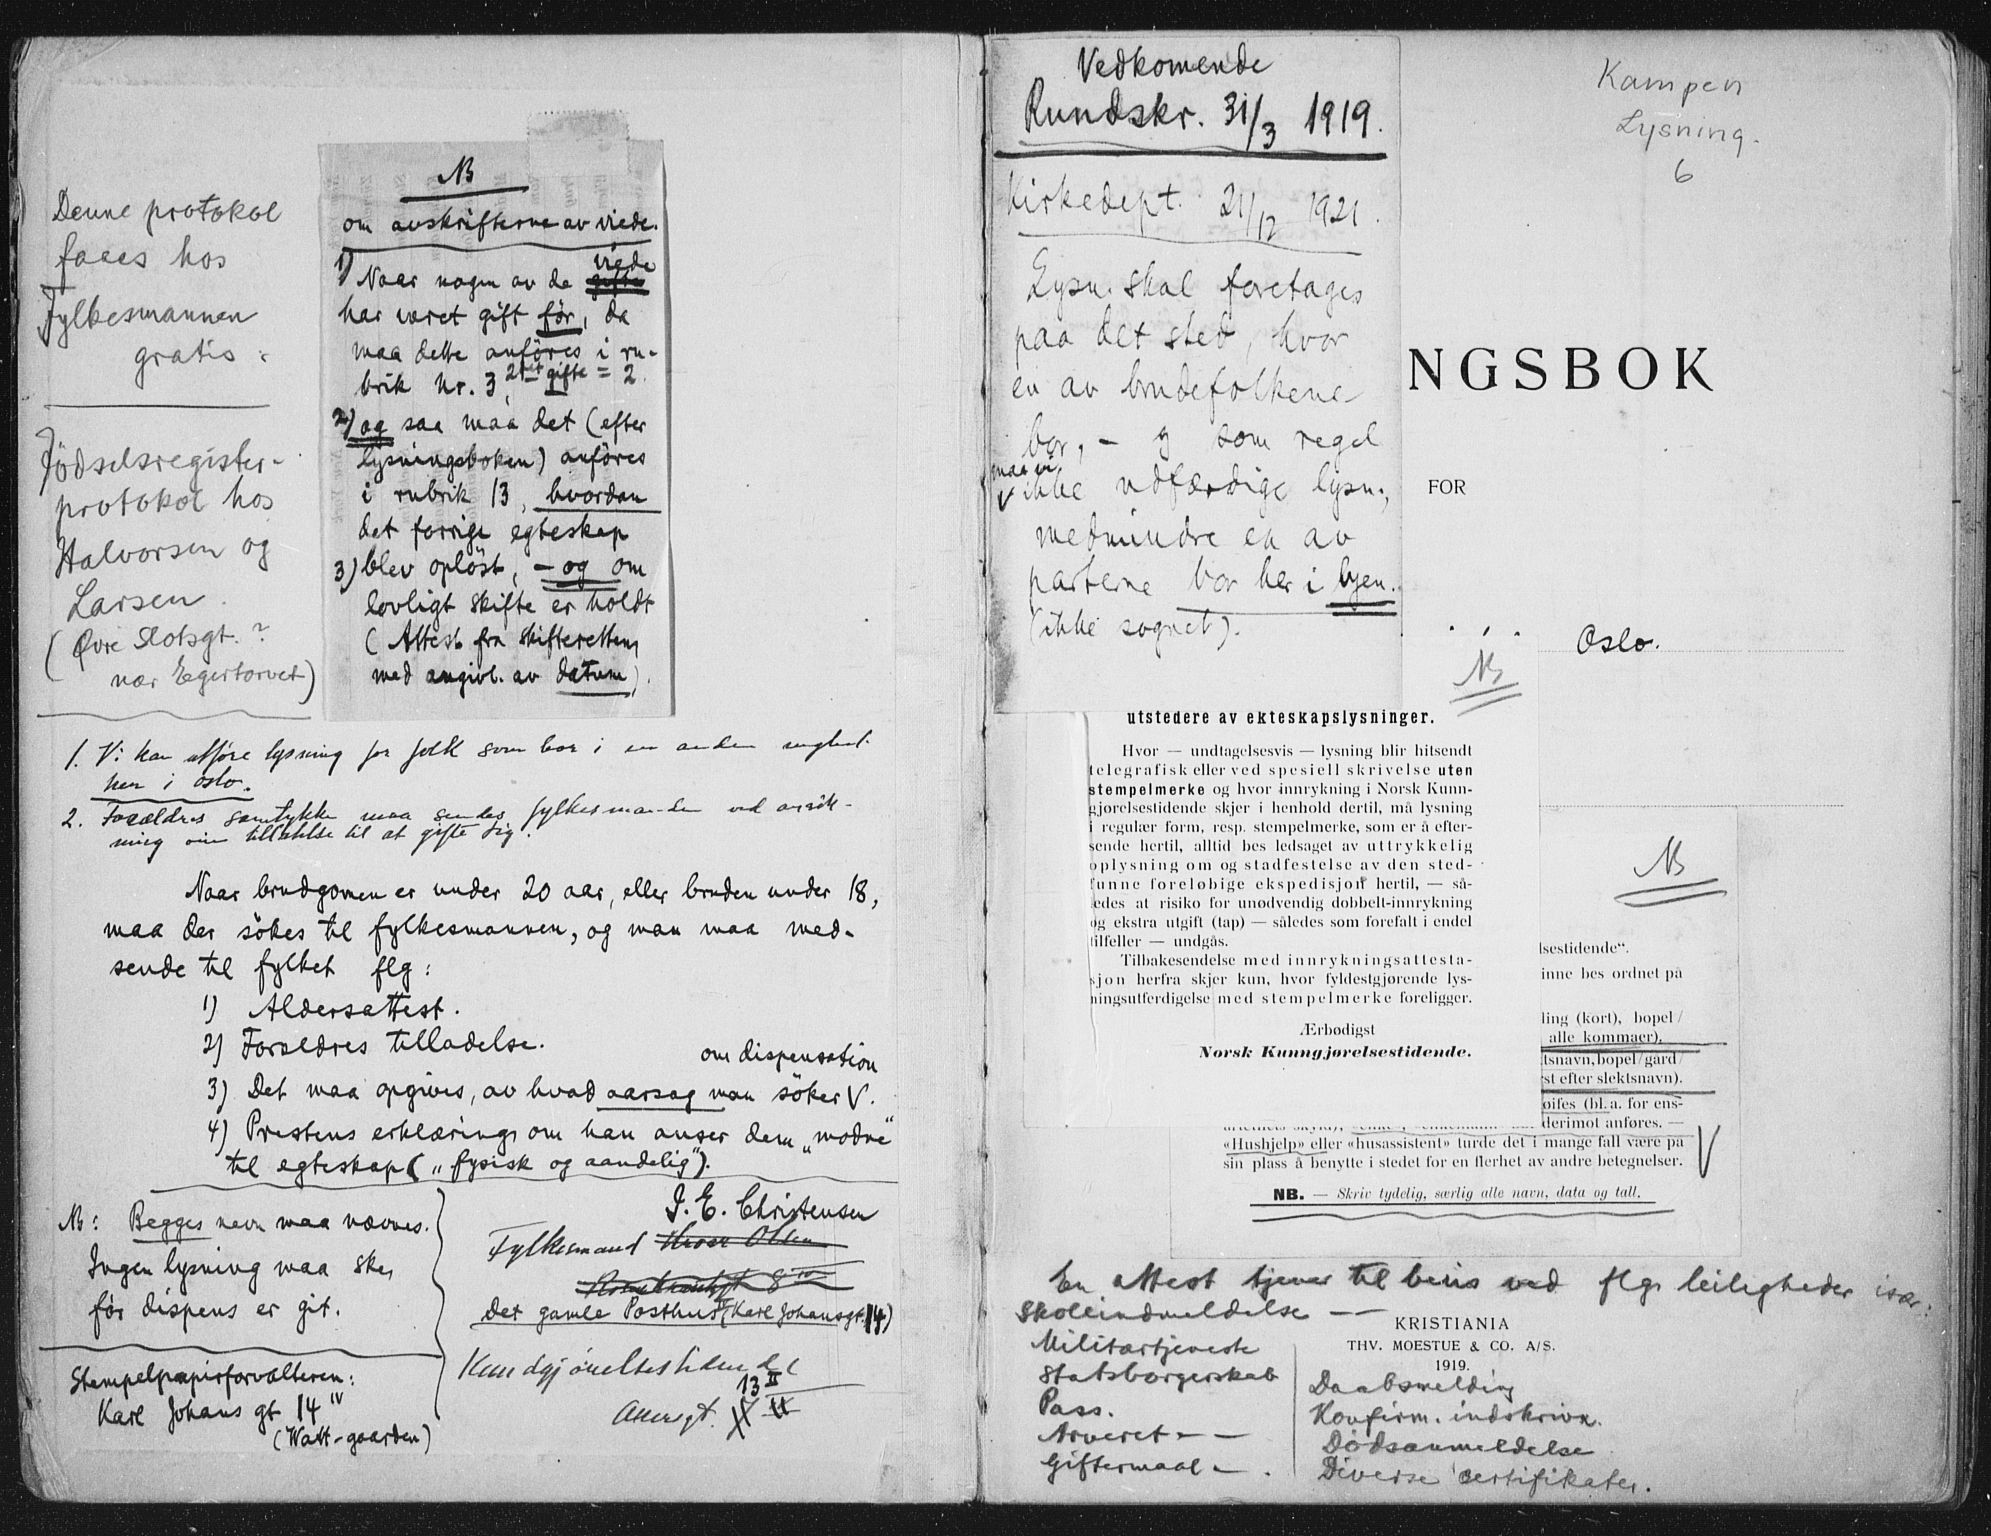 Denne protokol
faaes hos
Fylkesmannen
gratis.
Födselsregister-
protokol hos
Halvorsen og
Larsen.
(Øvre Slotsgt. ?
nær Egertorvet)
NB
om avskrifterne av viede.
1) Naar nogen av de viede
har været gift før, da
maa dette anföres i ru-
brik nr. 3, 2det gifte = 2.
2) og saa maa det (efter
lysningsboken) anföres
i rubrik 13, hvordan
det forrige egteskap
3) blev oplöst, - og om
lovligt skifte er holdt
(Attest fra skifteretten,
med angivl. av datum).
1. Vi kan utföre lysning for folk som bor i en anden menighet
her i Oslo.
2. Forældres samtykke maa sendes fylkesmanden ved ansök-
ning om tillatelse til at gifte sig.
Naar brudgomen er under 20 aar, eller bruden under 18,
maa der sökes til fylkesmannen, og man maa med-
sende til fylket flg:
1) Aldersattest.
2) Forældres tilladelse.
om dispensation
3) Det maa opgives, av hvad aarsag man söker V.
4) Prestens erklæring om han anser dem „modne“
til egteskap („fysisk og aandelig“).
NB: Begges navn maa nævnes.
Ingen lysning maa ske,
för dispens er git.
Stempelpapirforvalteren:
Karl Johans gt 14 IV
(Watt-gaarden)
J. E. Christensen
Fylkesmand Hroar Olsen
Det gamle Posthus (Karl Johansgt. 14)
Kundgjörelsestidende
13 II
Akersgt.
Vedkomende
Rundskr. 31/3 1919.
Kirkedept. 21/12 1921.
Lysn. skal foretages
paa det sted, hvor
en av brudefolkene
bor, - og som regel
maa vi
V ikke udfærdige lysn.,
medmindre en av
parterne bor her i byen.
(ikke sognet).
Kampen
Lysning.
6
NGSBOK
FOR
Oslo.
NB
utstedere av ekteskapslysninger.
Hvor — undtagelsesvis — lysning blir hitsendt
telegrafisk eller ved spesiell skrivelse uten
stempelmerke og hvor innrykning i Norsk Kunn-
gjørelsestidende skjer i henhold dertil, må lysning
i regulær form, resp. stempelmerke, som er å efter-
sende hertil, alltid bes ledsaget av uttrykkelig
oplysning om og stadfestelse av den sted-
funne foreløbige ekspedisjon hertil, — så-
ledes at risiko for unødvendig dobbelt-innrykning
og ekstra utgift (tap) — således som forefalt i endel
tilfeller — undgås.
Tilbakesendelse med innrykningsattesta-
sjon herfra skjer kun, hvor fyldestgjørende lys-
ningsutferdigelse med stempelmerke foreligger.
Ærbødigst
Norsk Kunngjørelsestidende.
NB
lsestidende“.
inne bes ordnet på
ling (kort), bopel/
alle kommaer).
tsnavn, bopel/gård/
st efter slektsnavn).
øifes (bl. a. for ens-
derimot anføres. —
«Hushjelp» eller «husassistent» turde det i mange fall være på
sin plass å benytte i stedet for en flerhet av andre betegnelser.
V
NB. — Skriv tydelig, særlig alle navn, data og tall.
En attest tjener til bevis ved flg. leiligheder især:
Skoleindmeldelse —
Militærtjeneste
Statsborgerskab
Pass.
Arveret - -
Giftermaal - .
KRISTIANIA
THV. MOESTUE & CO. A/S.
1919.
Daabsmelding
Konfirm. indskrivn.
Dödsanmeldelse
Diverse certifikater.